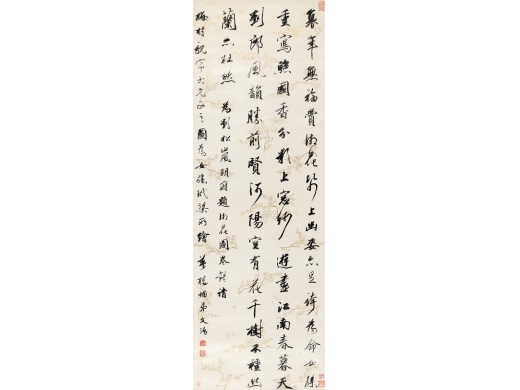 衰年無福賞湘花紙上幽姿亦足誇為命女孫
重寫照國香分影上窗紗 遊盡江南春暮天
劉郎風韻勝前賢河陽空有花千樹不種此
蘭亦枉然 為劉松嵐明府題湘花圖卷錄請
梅村親家大兄正之 圖為女孫玳梁所繪 夢樓姻弟文治